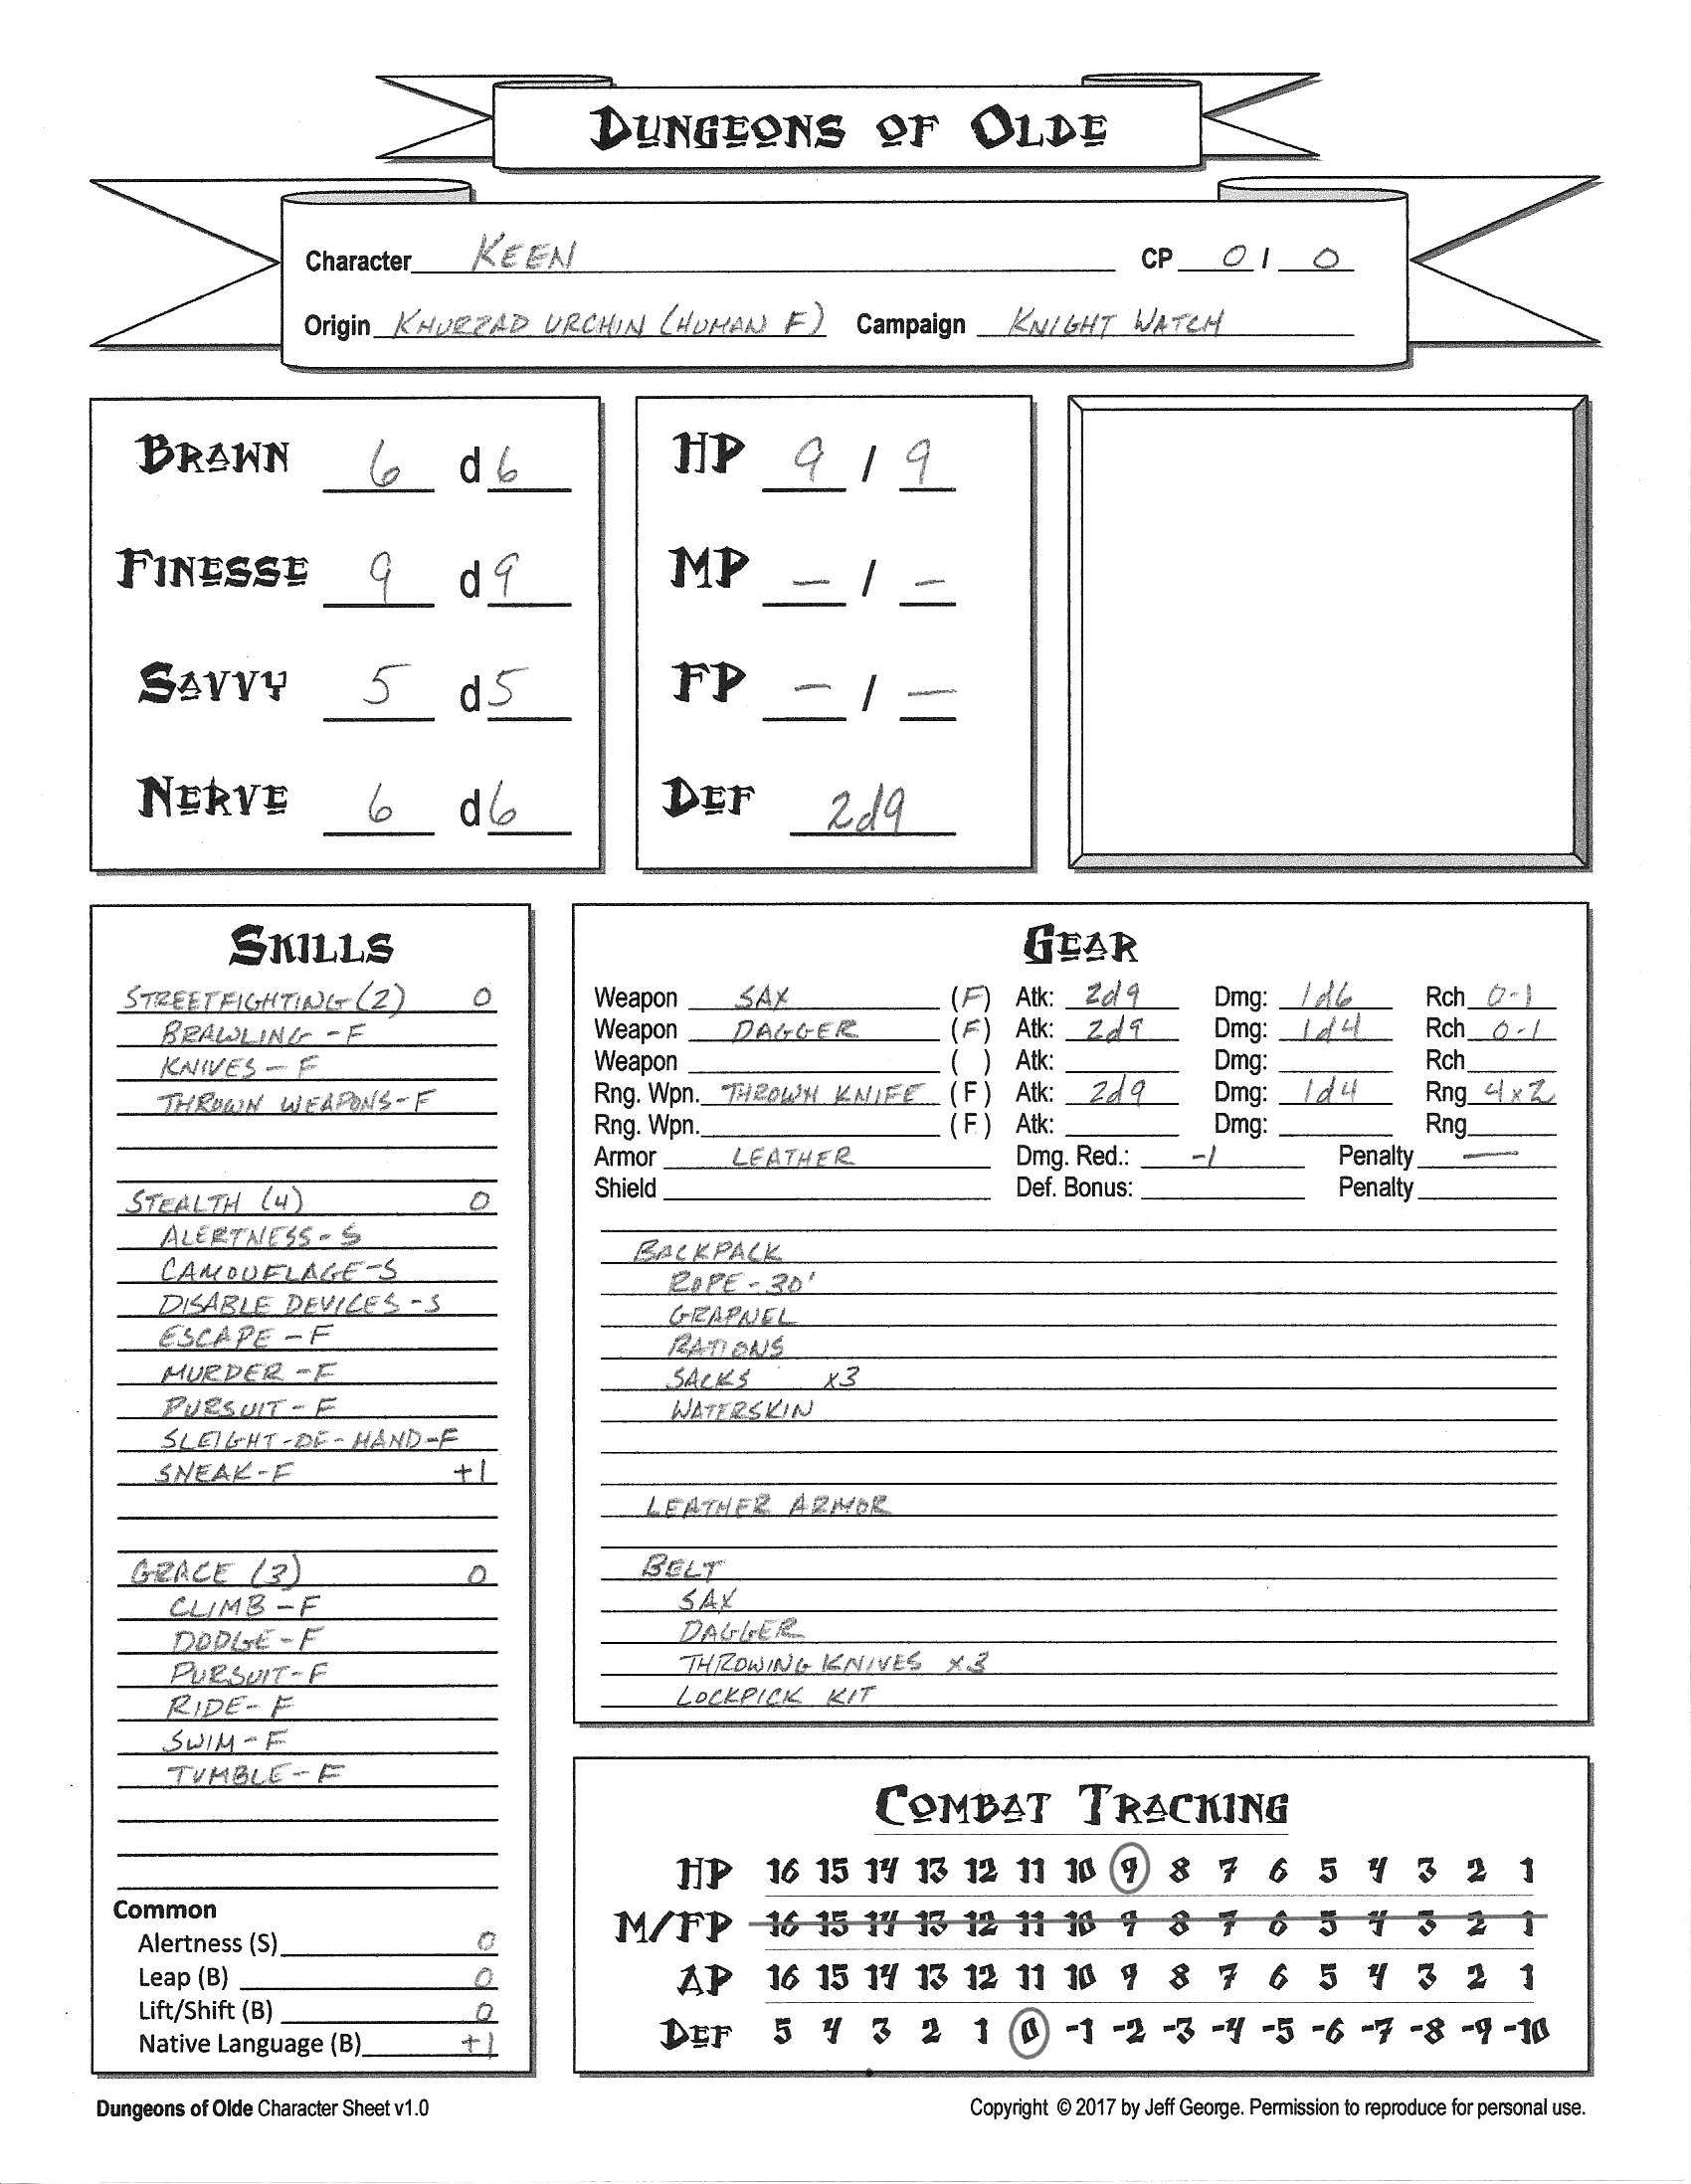 DUNGEONS OF OLDE
Character KEEN CP 0 / 0
Origin KHURZAD URCHIN (HUMAN F) Campaign KNIGHT WATCH
BRAWN 6 d6
FINESSE 9 d9
SAVVY 5 d5
NERVE 6 d6
HP 9 / 9
MP – / –
FP – / –
DEF 2d9
SKILLS
STREETFIGHTING (2) 0
BRAWLING - F
KNIVES - F
THROWN WEAPONS - F
STEALTH (4) 0
ALERTNESS - S
CAMOUFLAGE - S
DISABLE DEVICES - S
ESCAPE - F
MURDER - F
PURSUIT - F
SLEIGHT-OF-HAND - F
SNEAK - F +1
GRACE (3) 0
CLIMB - F
DODGE - F
PURSUIT - F
RIDE - F
SWIM - F
TUMBLE - F
Common
Alertness (S) 0
Leap (B) 0
Lift/Shift (B) 0
Native Language (B) +1
GEAR
Weapon SAX (F) Atk: 2d9 Dmg: 1d6 Rch 0-1
Weapon DAGGER (F) Atk: 2d9 Dmg: 1d4 Rch 0-1
Weapon ( ) Atk: Dmg: Rch
Rng. Wpn. THROWN KNIFE (F) Atk: 2d9 Dmg: 1d4 Rng 4x2
Rng. Wpn. (F) Atk: Dmg: Rng
Armor LEATHER Dmg. Red.: -1 Penalty —
Shield Def. Bonus: Penalty
BACKPACK
ROPE - 30'
GRAPNEL
RATIONS
SACKS x3
WATERSKIN
LEATHER ARMOR
BELT
SAX
DAGGER
THROWING KNIVES x3
LOCKPICK KIT
COMBAT TRACKING
HP 16 15 14 13 12 11 10 9 8 7 6 5 4 3 2 1
M/FP 16 15 14 13 12 11 10 9 8 7 6 5 4 3 2 1
AP 16 15 14 13 12 11 10 9 8 7 6 5 4 3 2 1
DEF 5 4 3 2 1 0 -1 -2 -3 -4 -5 -6 -7 -8 -9 -10
Dungeons of Olde Character Sheet v1.0
Copyright © 2017 by Jeff George. Permission to reproduce for personal use.